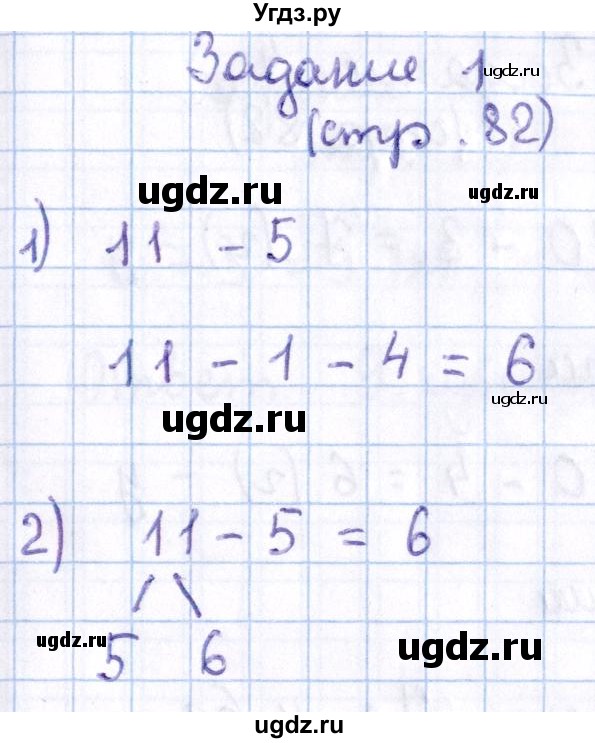 Угдз.ру
Задание 1
ugdz.ru
(стр. 82)
ugdz.ru
ugdz.ru
1) 11 - 5
11 - 1 - 4 = 6
ugdz.ru
ugdz.ru
2) 11 - 5 = 6
5 6
ugdz.ru
ugdz.ru
ugdz.ru